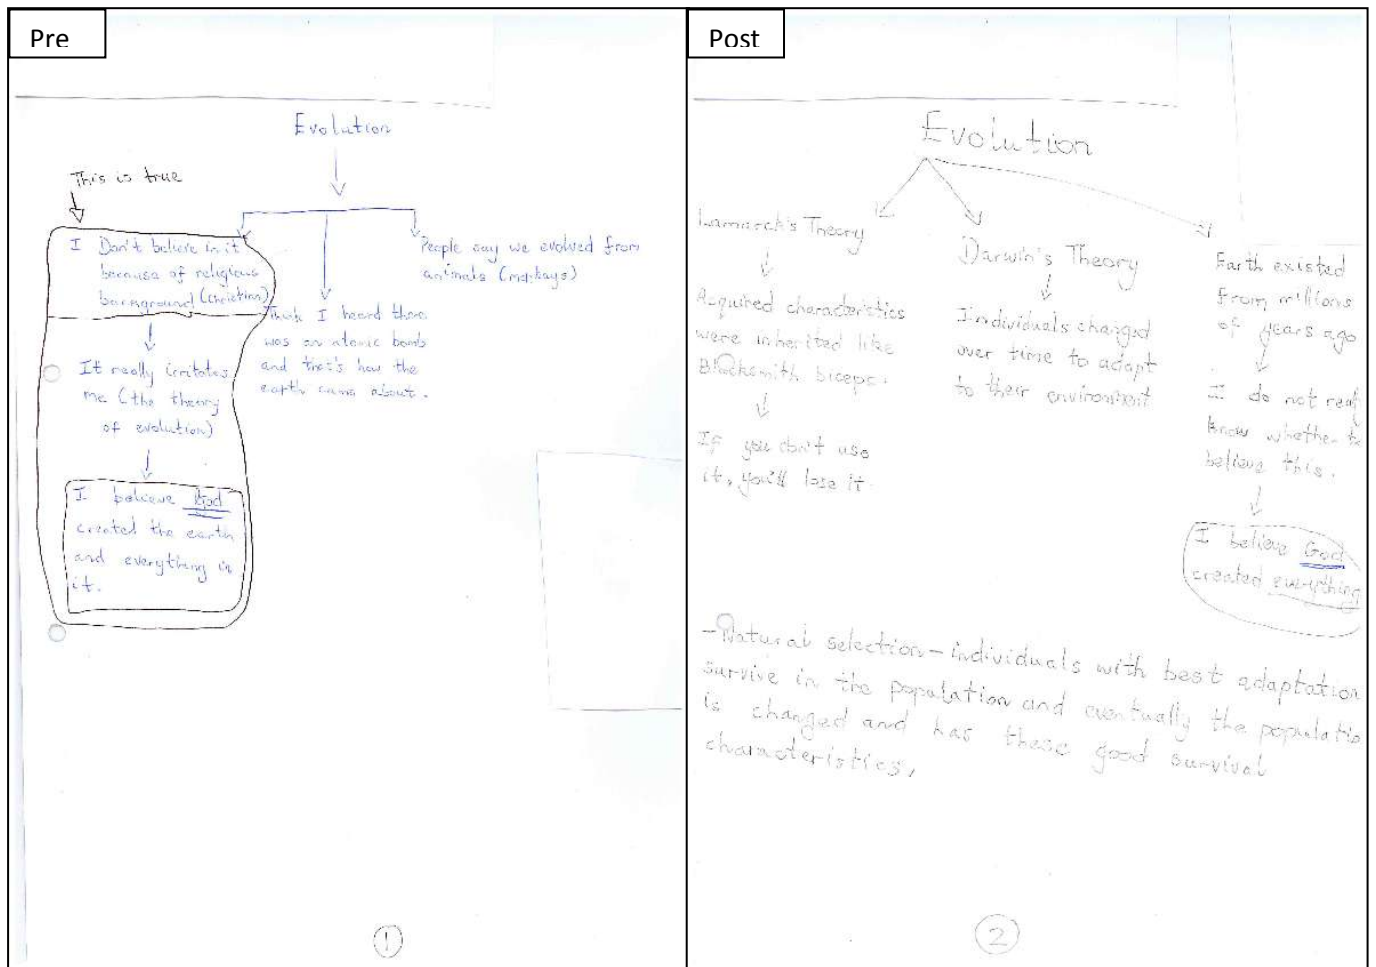 Pre
Evolution
This is true
I Don't believe in it
because of religious
background (christian)
It really irritates
me (the theory
of evolution)
I believe God
created the earth
and everything in
it.
Think I heard there
was an atomic bomb
and that's how the
earth came about.
People say we evolved from
animals
1
Post
Evolution
Lamarck's Theory
Acquired characteristics
were inherited like
Blacksmith biceps.
If you don't use
it, you'll lose it.
Darwin's Theory
Individuals changed
over time to adapt
to their environment
Earth existed
from millions
of years ago
I do not real
know whether to
believe this.
I believe God
created everything
-Natural selection-individuals with best adaptation
survive in the population and eventually the populatio
is changed and has these good survival
characteristics,
2